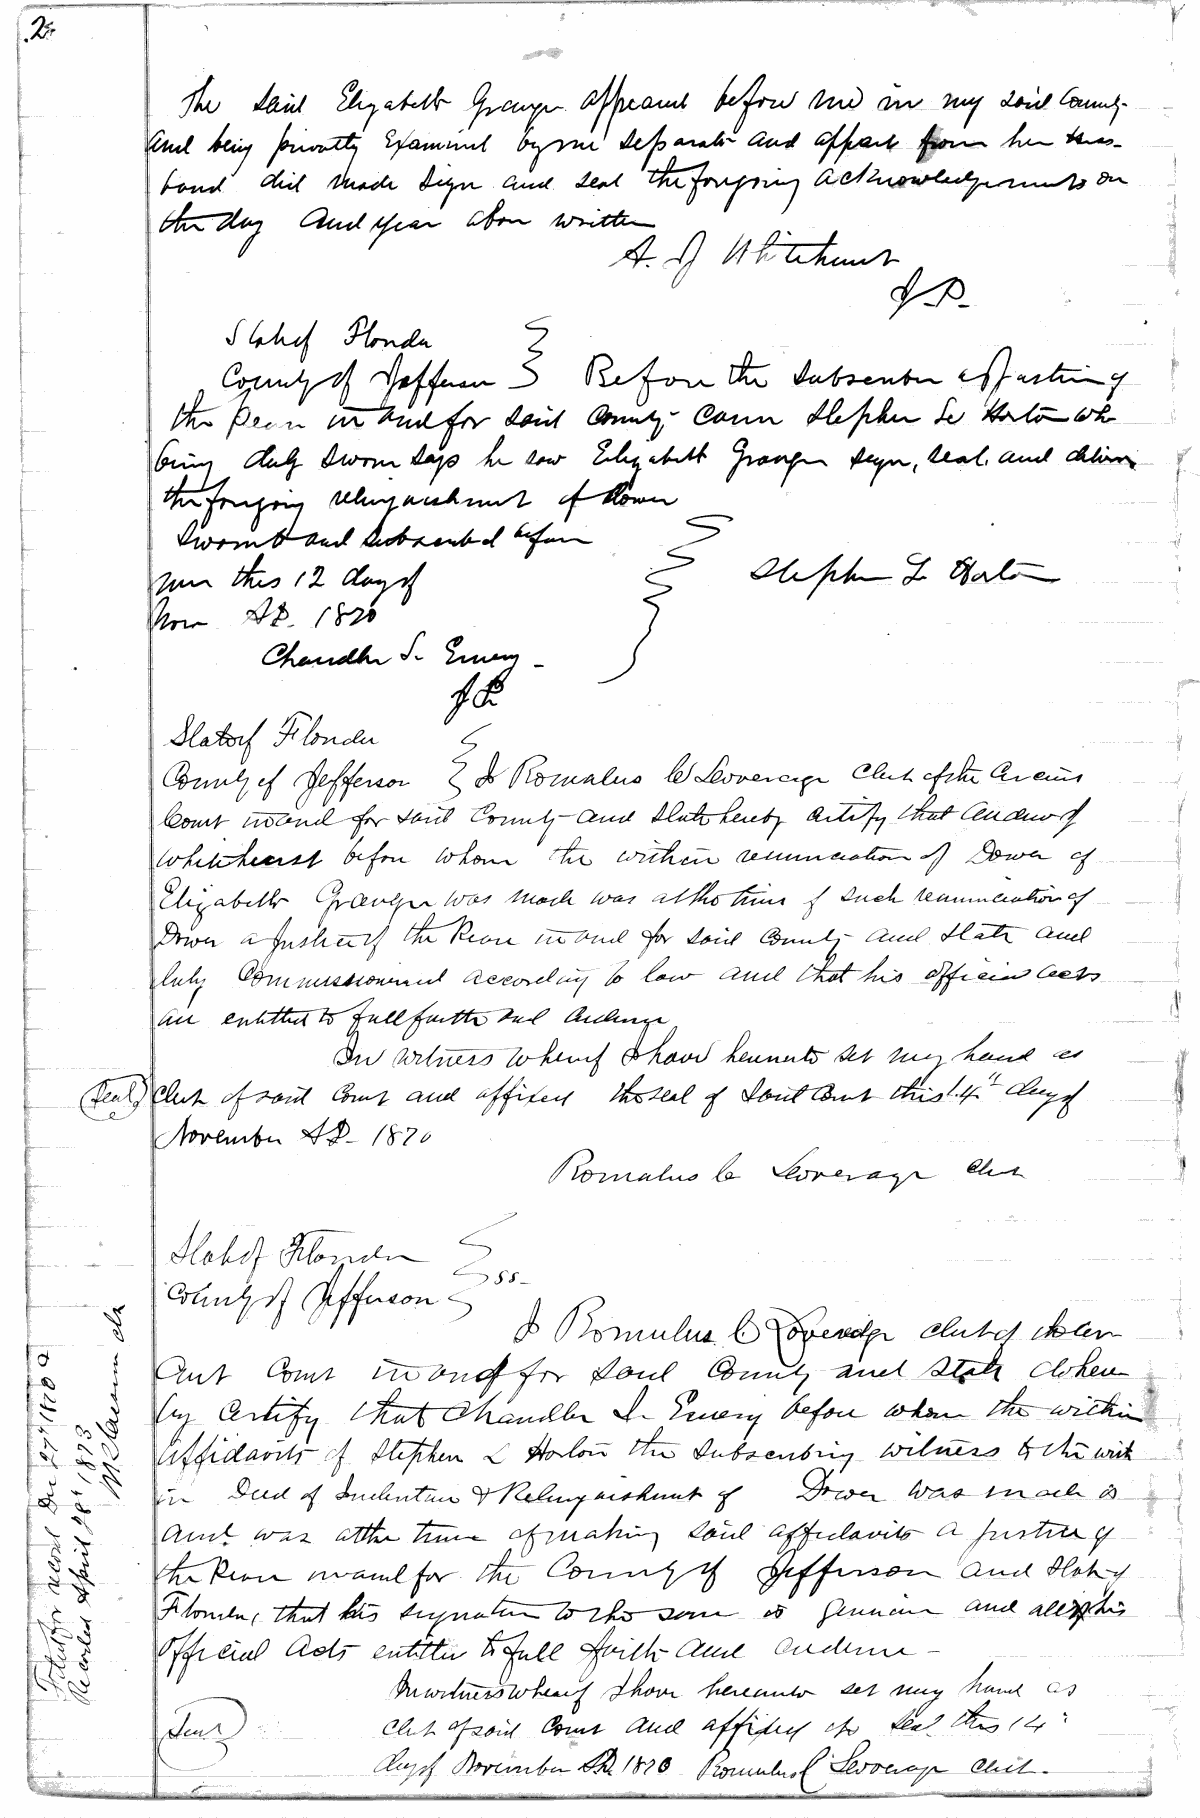 2
The said Elizabeth Granger appeared before me in my said County
and being privately Examined by me separate and appart from her Hus-
band did made sign and seal the forgoing acknowledgements on
the day and year above written
A. J Whitehurst
J. P.
State of Florida
County of Jefferson } Before the subscriber a Justice of
the Peace in and for said County came Stephen L Horton who
being duly sworn says he saw Elizabeth Granger sign, seal, and deliver
the forgoing relinquishment of Dower
Sworn to and subscribed before
me this 12 day of
Nov AD. 1870
Stephen L Horton
Chandler S. Emery
J P
State of Florida
County of Jefferson } I Romulus C Loverage Clerk of the Circuit
Court in and for said County and State hereby certify that Andrew J
Whitehurst before whom the within renunciation of Dower of
Elizabeth Granger was made was at the time of such renunciation of
Dower a Justice of the Peace in and for said County and State and
duly Commissioned according to law and that his official acts
are entitled to full faith and credence
In witness whereof I have hereunto set my hand as
(Seal) Clerk of said Court and affixed the seal of said Court this 14" day of
November AD- 1870
Romulus C Loverage Clerk
State of Florida
County of Jefferson } ss-
I Romulus C Loverage clerk of the Cir
cuit Court in and for said County and State do here-
by certify that Chandler S. Emery before whom the within
affidavits of Stephen L Horton the subscribing witness to the with
in Deed of Indenture & Relinquishment of Dower was made is
and was at the time of making said affidavits a Justice of
the Peace in and for the County of Jefferson and State of
Florida, that his signature to the same is genuine and all of his
official acts entitled to full faith and credence -
In witness whereof I have hereunto set my hand as
(Seal) clerk of said Court and affixed the seal this 14"
day of November AD. 1870 Romulus C Loverage Clerk.
Filed for record Dec 27" 1870
Recorded April 28" 1873
clk